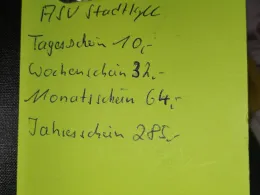 ASV Stadtkyll
Tagesschein 10,-
Wochenschein 32,-
Monatsschein 64,-
Jahresschein 285,-